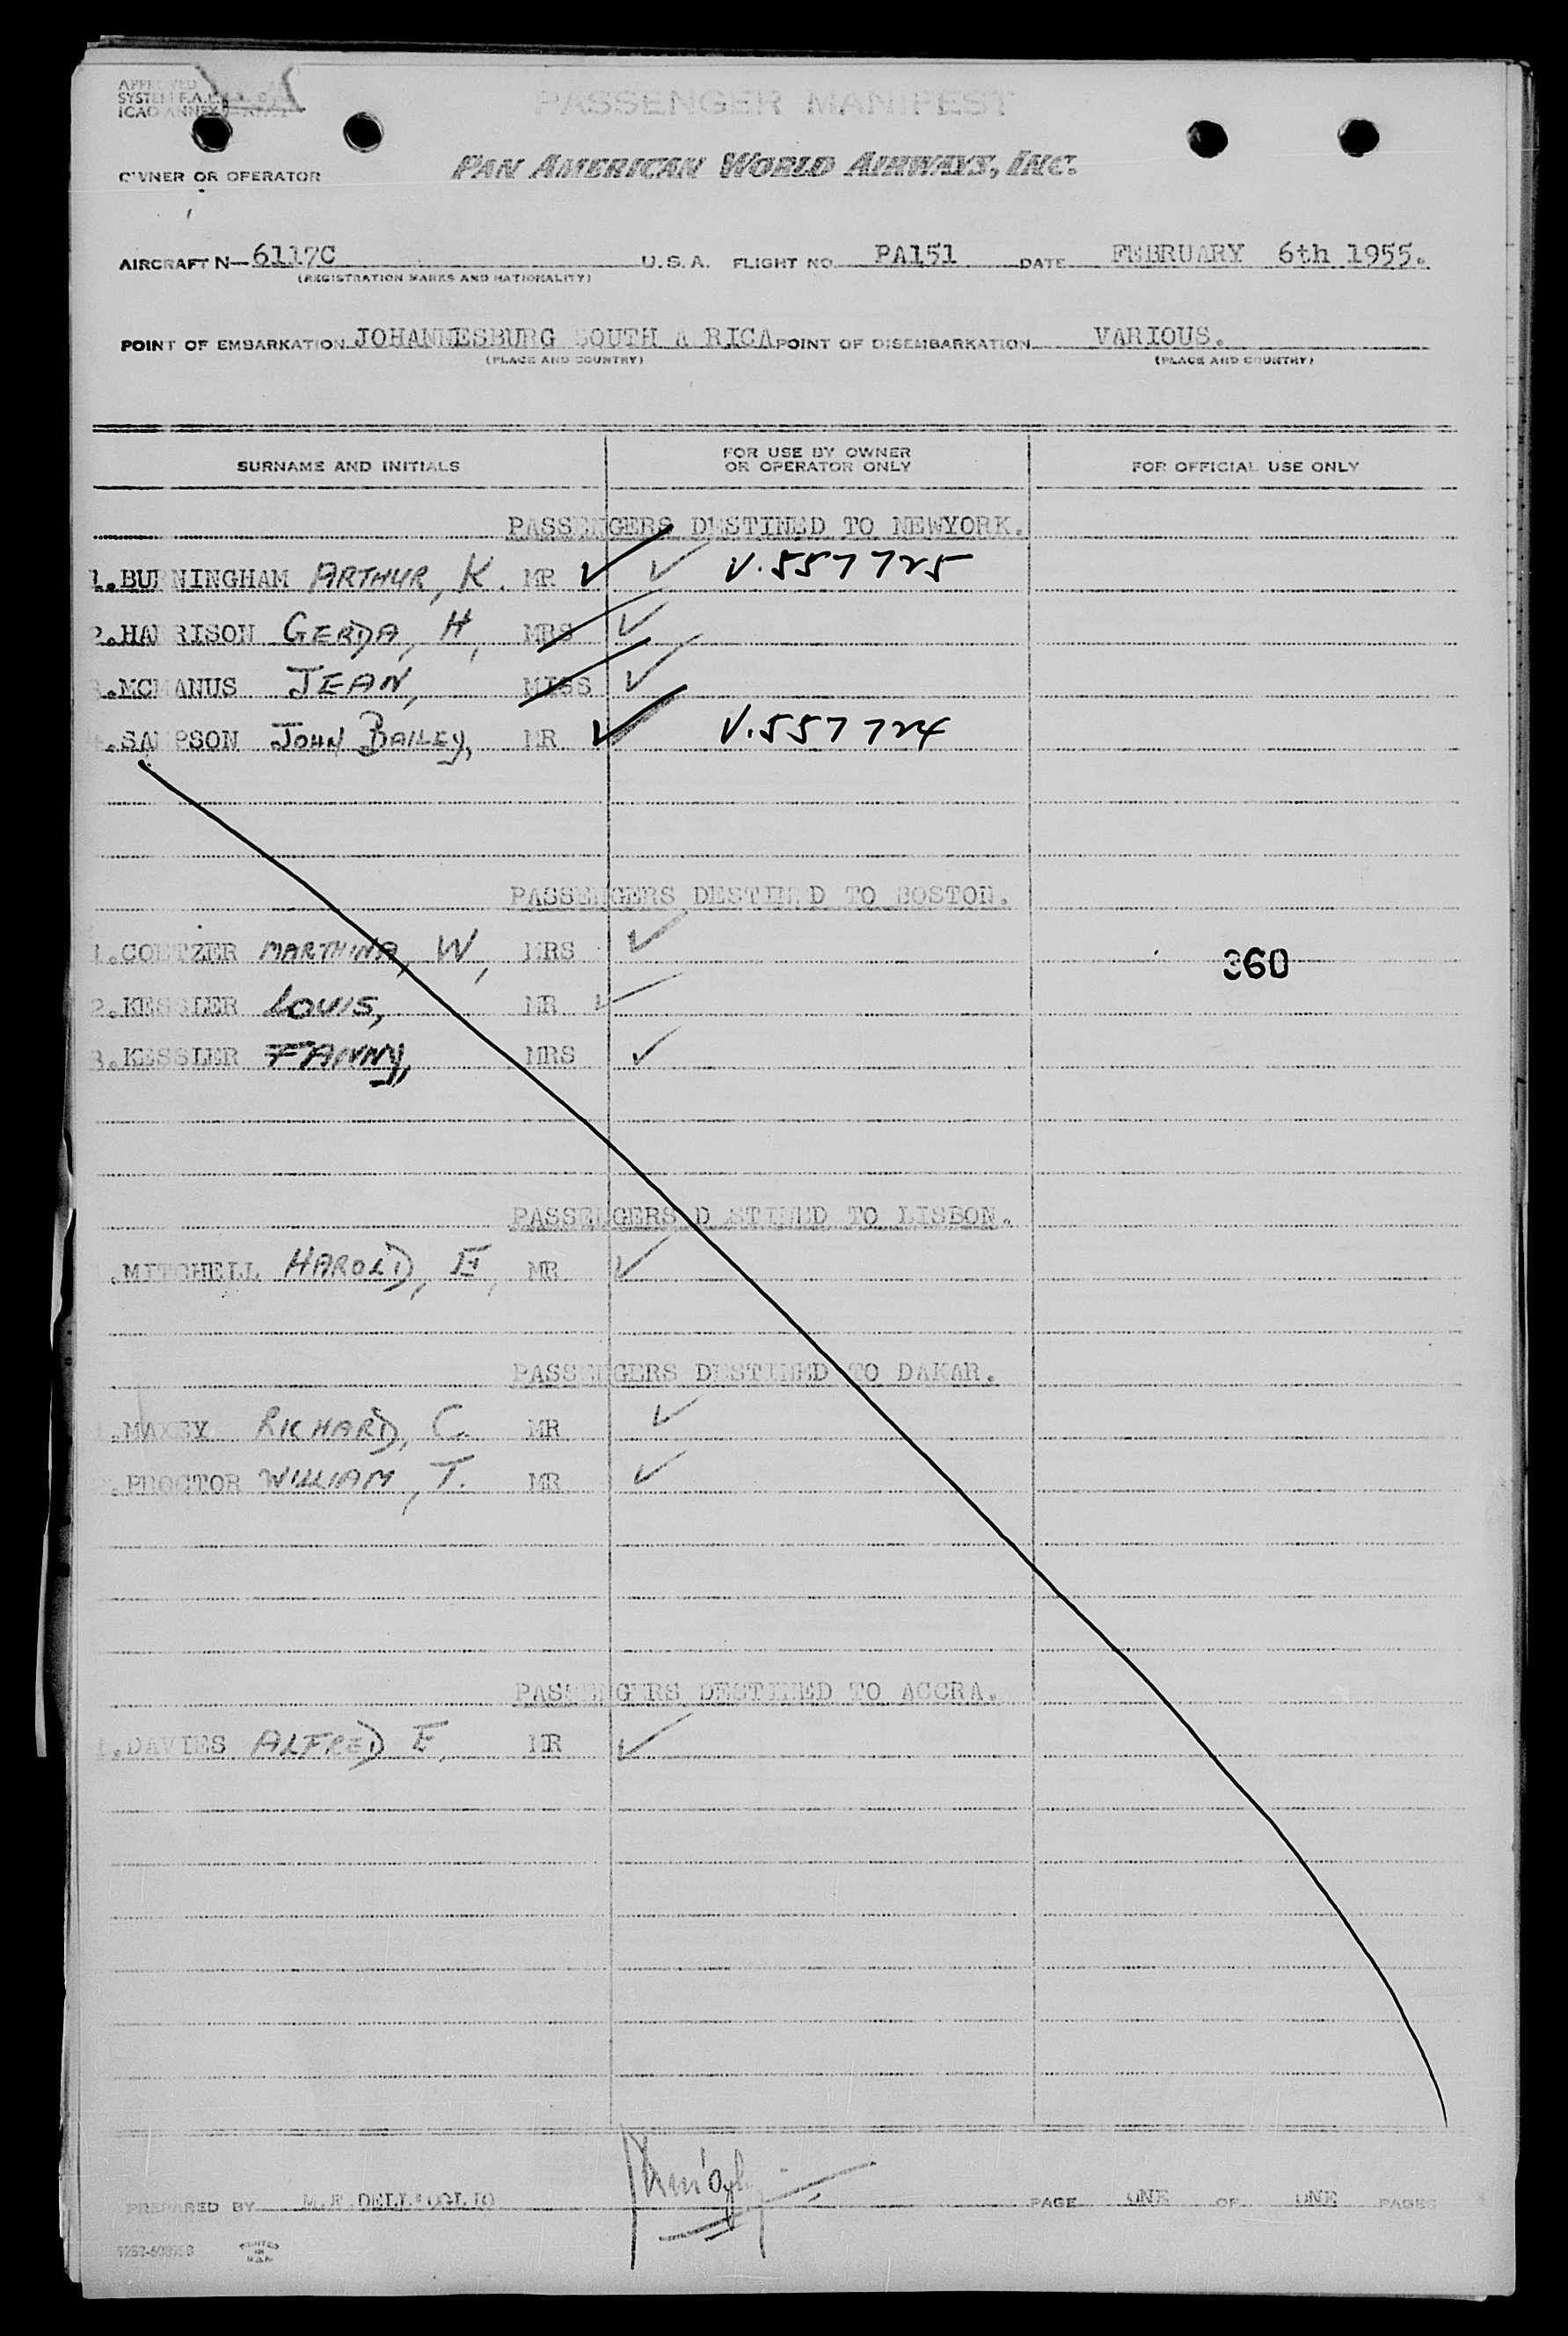 APPROVED
SYSTEM F.A.L.
ICAO ANNEX
PASSENGER MANIFEST
OWNER OR OPERATOR PAN AMERICAN WORLD AIRWAYS, INC.
AIRCRAFT N-6117C U.S.A. FLIGHT NO. PA151 DATE FEBRUARY 6th 1955.
(REGISTRATION MARKS AND NATIONALITY)
POINT OF EMBARKATION JOHANNESBURG SOUTH A RICA POINT OF DISEMBARKATION VARIOUS.
(PLACE AND COUNTRY) (PLACE AND COUNTRY)
SURNAME AND INITIALS FOR USE BY OWNER OR OPERATOR ONLY FOR OFFICIAL USE ONLY
PASSENGERS DESTINED TO NEWYORK.
1.BURNINGHAM ARTHUR, K. MR ✓ ✓ V.557725
2.HARRISON GERDA, H, MRS ✓
3.MCMANUS JEAN, MISS ✓
4.SAMPSON JOHN BAILEY, MR ✓ V.557724
PASSENGERS DESTINED TO BOSTON.
1.COETZER MARTHINA, W, MRS ✓
360
2.KESSLER LOUIS, MR ✓
3.KESSLER FANNY, MRS ✓
PASSENGERS D STINED TO LISBON.
1.MITCHELL HAROLD, E, MR ✓
PASSENGERS DESTINED TO DAKAR.
1.MAXEY RICHARD, C. MR ✓
2.PROCTOR WILLIAM, T. MR ✓
PASSENGERS DESTINED TO ACCRA.
1.DAVIES ALFRED E, MR ✓
PREPARED BY M.F.DELL'OGLIO PAGE ONE OF ONE PAGES
PRINTED IN U.S.A.